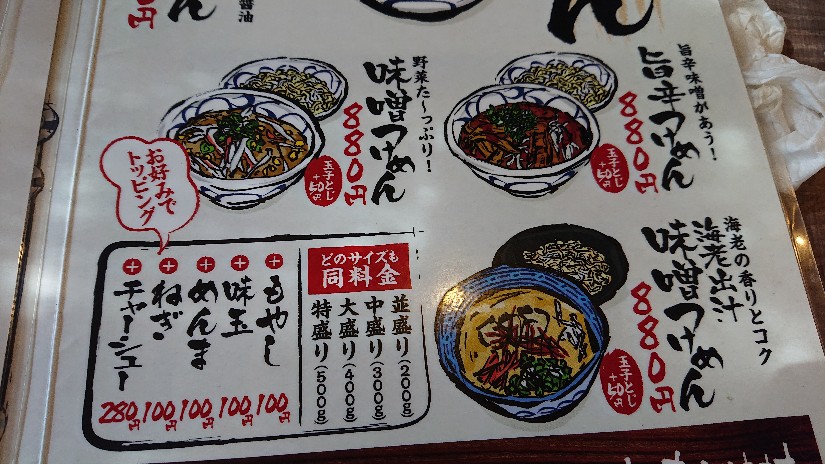 醤油
円
ん
ん
旨辛味噌があう!
旨辛つけめん
880円
玉子とじ
+50円
野菜た〜っぷり!
味噌つけめん
880円
玉子とじ
+50円
海老の香りとコク
海老出汁
味噌つけめん
880円
玉子とじ
+50円
お好みで
トッピング
どのサイズも
同料金
並盛り(200g)
中盛り(300g)
大盛り(400g)
特盛り(500g)
+もやし 100円
+味玉 100円
+めんま 100円
+ねぎ 100円
+チャーシュー 280円